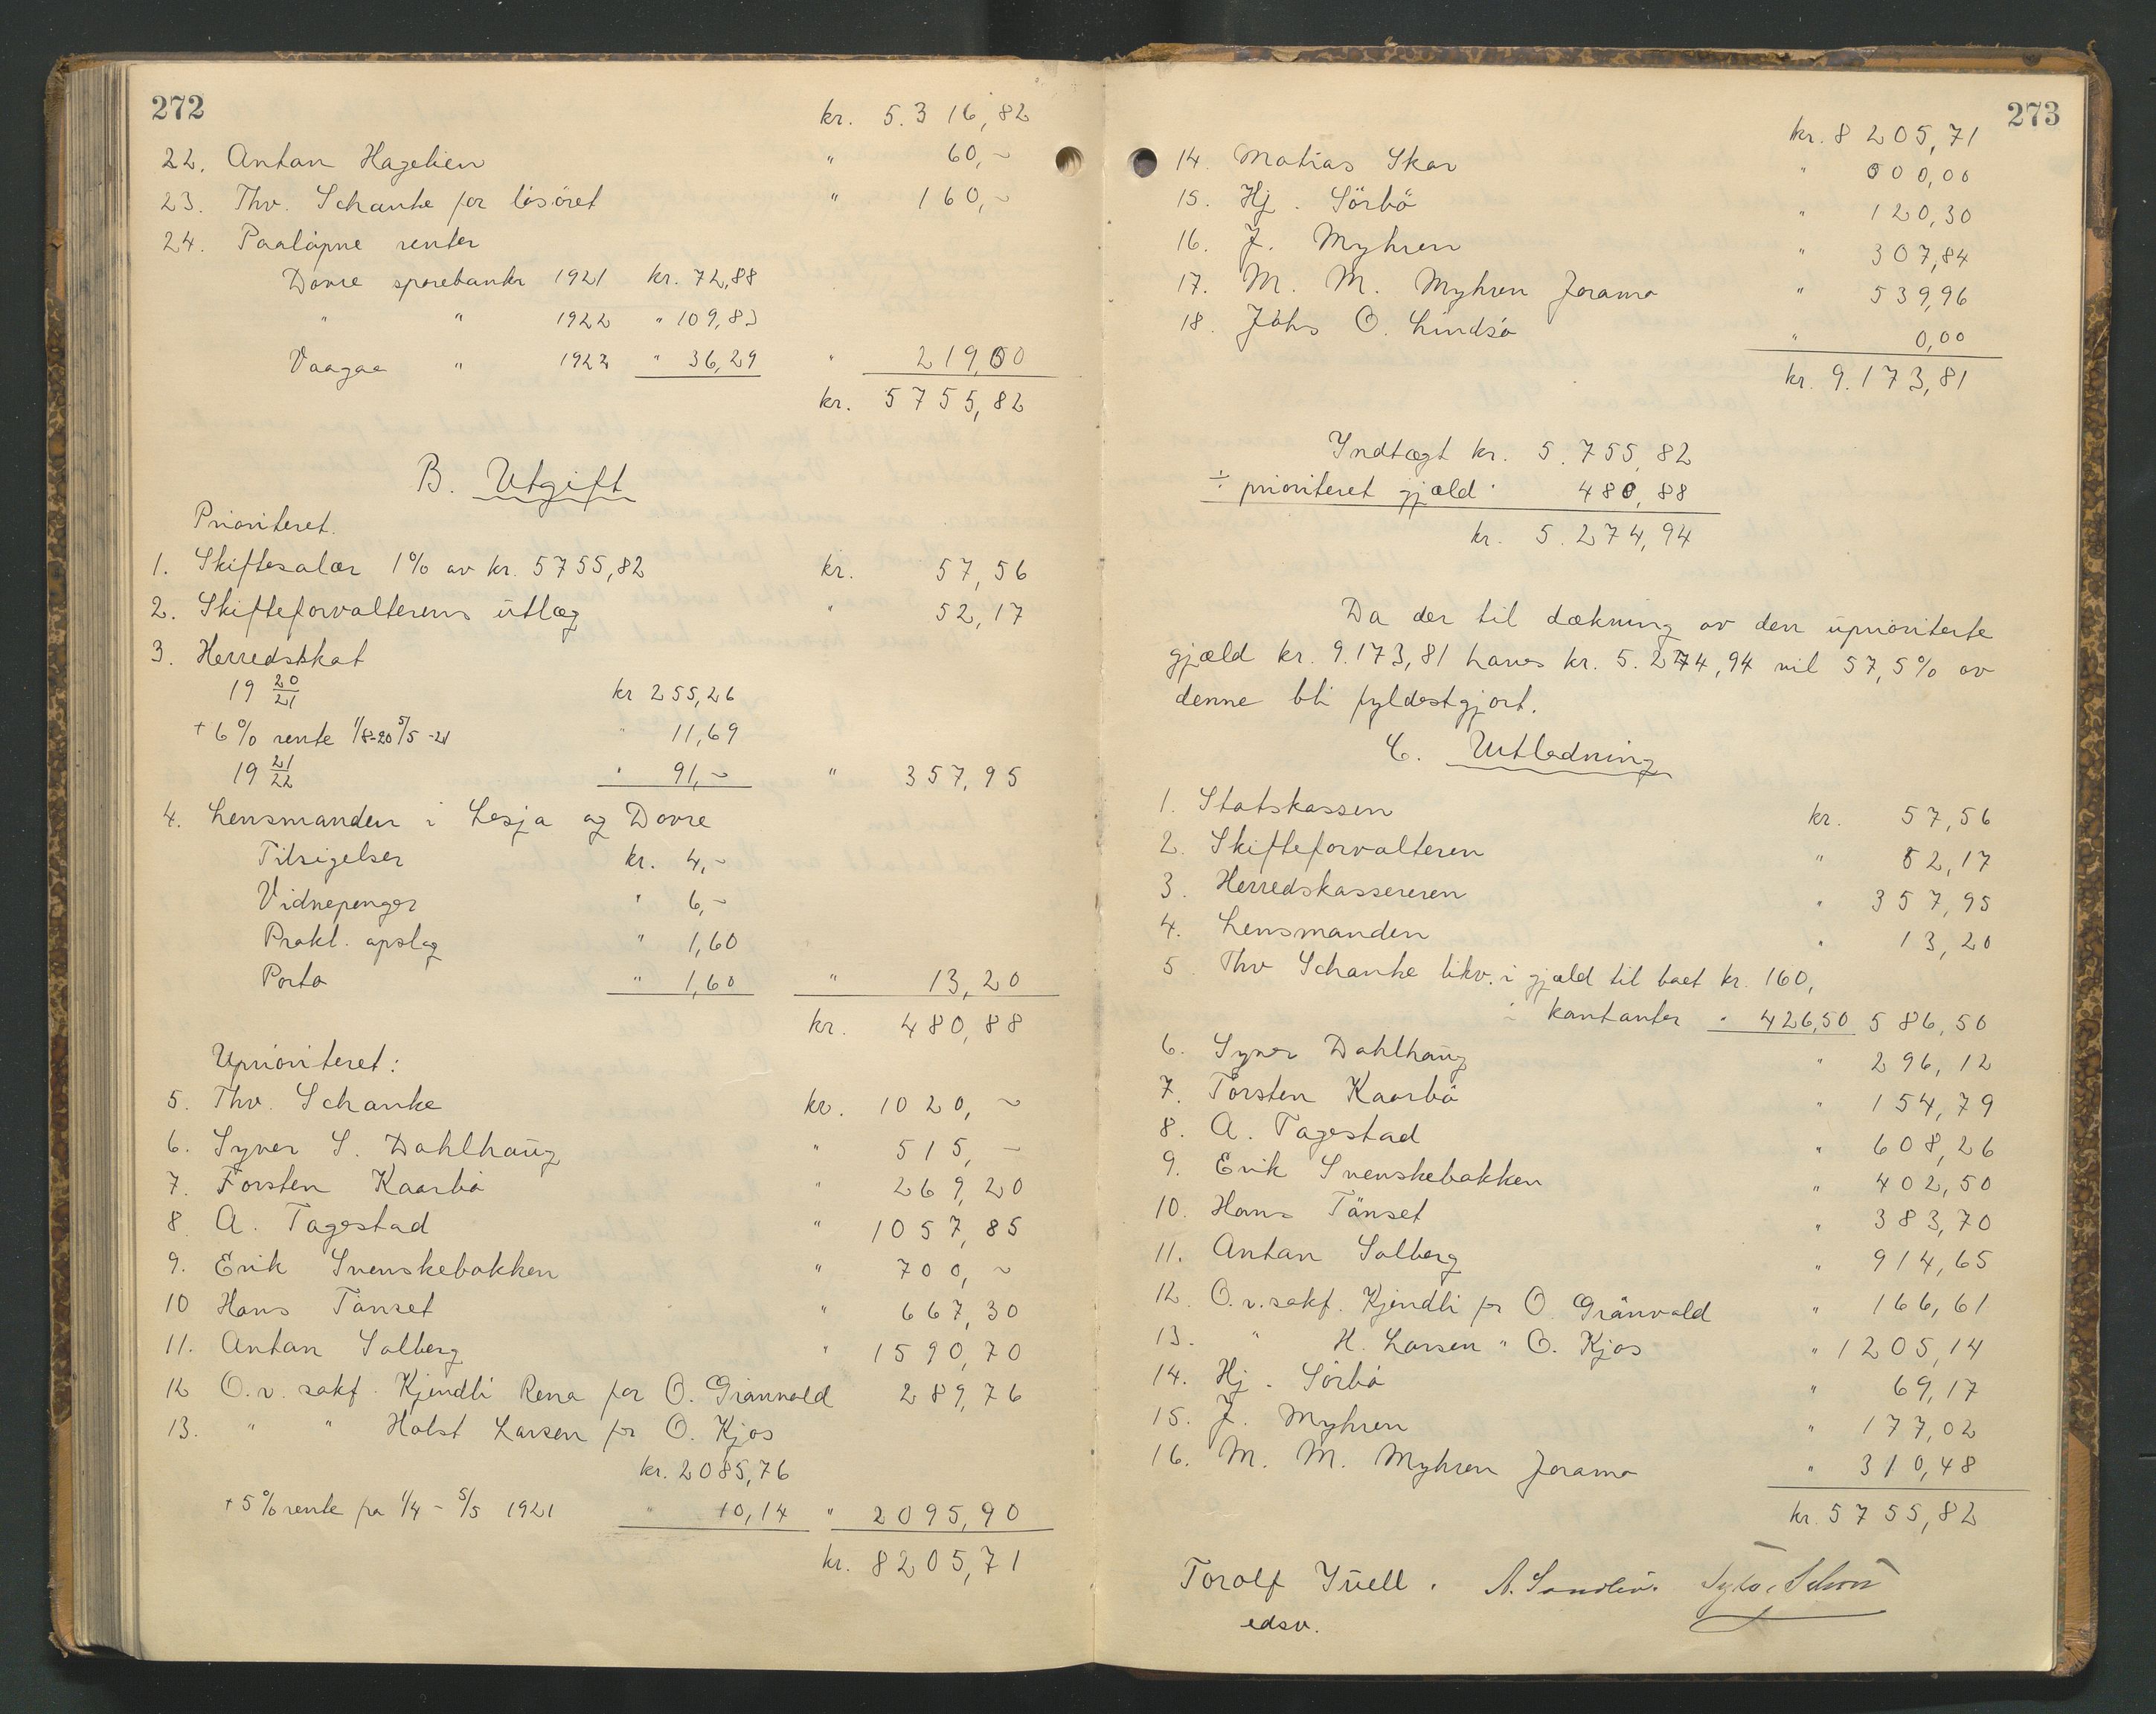 272
kr. 5.316,82
22. Anton Hagelien " 60,-
23. Thv. Schanke for lösöret " 160,-
24. Paaløpne renter
Dovre sparebank 1921 kr. 72,88
" " 1922 " 109,83
Vaagaa " 1922 " 36,29 " 219,00
kr. 5755,82
B. Utgift
Prioriteret.
1. Skiftesalær 1% av kr. 5755,82 kr. 57,56
2. Skifteforvalterens utlæg " 52,17
3. Herredsskat
19 20/21 kr 255,26
+ 6% rente 1/8-20 5/5-21 " 11,69
19 21/22 " 91,- " 357,95
4. Lensmanden i Lesja og Dovre
Tilsigelser kr. 4,-
Vidnepenger " 6,-
Prokl. opslag " 1,60
Porto " 1,60 " 13,20
kr. 480,88
Uprioriteret:
5. Thv. Schanke kr. 1020,-
6. Syver S. Dahlhaug " 515,-
7. Torsten Kaarbö " 269,20
8. A. Tagestad " 1057,85
9. Erik Svenskebakken " 700,-
10 Hans Tönset " 667,30
11. Anton Solberg " 1590,70
12 O.r. sakf. Kjendli Rena for O. Grönvold 289,76
13. " " Holst Larsen for O. Kjos
kr. 2085,76
+ 5% rente fra 1/4 - 5/5 1921 " 10,14 " 2095,90
kr. 8205,71
273
kr. 8205,71
14. Matias Skar " 000,00
15. Hj. Sörbö " 120,30
16. J. Myhren " 307,84
17. M. M. Myhren Joramo " 539,96
18. Johs O. Lindsö " 0,00
kr. 9.173,81
Indtægt kr. 5.755,82
÷ prioriteret gjæld " 480,88
kr. 5.274,94
Da der til dækning av den uprioriterte
gjæld kr. 9.173,81 haves kr. 5.274,94 vil 57,5% av
denne bli fyldestgjort.
C. Utlodning
1. Statskassen kr. 57,56
2. Skifteforvalteren " 52,17
3. Herredskassereren " 357,95
4. Lensmanden " 13,20
5 Thv Schanke likv. i gjæld til boet kr. 160,
i kontanter " 426,50 586,50
6. Syver Dahlhaug " 296,12
7. Torsten Kaarbö " 154,79
8. A. Tagestad " 608,26
9. Erik Svenskebakken " 402,50
10. Hans Tönset " 383,70
11. Anton Solberg " 914,65
12. O.r. sakf. Kjendli for O. Grönvold " 166,61
13. " H. Larsen " O. Kjos " 1205,14
14. Hj. Sörbö " 69,17
15. J. Myhren " 177,02
16. M. M. Myhren Joramo " 310,48
kr. 5755,82
Torolf Juell. A. Sandlie.
edsv.